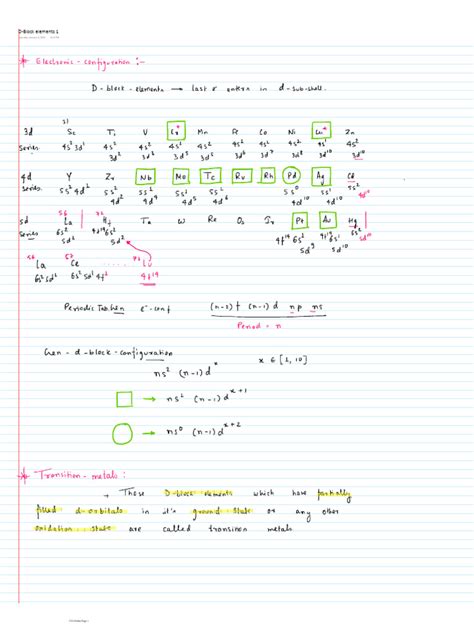 D-Block elements 1
* Electronic - configuration :-
D - block - elements → last e⁻ enters in d - sub-shell.
21
3d Sc Ti V Cr* Mn Fe Co Ni Cu* Zn
Series. 4s² 3d¹ 4s² 4s² 4s¹ 4s² 4s² 4s² 4s² 4s¹ 4s²
3d² 3d³ 3d⁵ 3d⁵ 3d⁶ 3d⁷ 3d⁸ 3d¹⁰ 3d¹⁰
4d Y Zr Nb Mo Tc Ru Rh Pd Ag Cd
series. 5s² 4d¹ 5s² 4d² 5s⁰ 4d¹⁰ 5s¹ 4d¹⁰ 5s² 4d¹⁰
5d 56 La 72 H Ta W Re Os Ir Pt Au Hg
series 6s² 5d¹ 6s² 5d² 4f¹⁴ 6s¹ 5d⁹ 4f¹⁴ 6s¹ 5d¹⁰ 6s² 5d¹⁰
56 57 71
La Ce ...... Lu
6s² 5d¹ 6s² 5d¹ 4f¹ 4f¹⁴
Periodic Table e⁻ - conf (n-2)f (n-1)d np ns
Period = n
Gen - d - block - configuration
ns² (n-1)d^x x ∈ [1, 10]
□ → ns¹ (n-1)d^x+1
○ → ns⁰ (n-1)d^x+2
* Transition - metals :
→ These D-block elements which have partially
filled d-orbitals in it's ground-state or any other
oxidation state are called transition metals